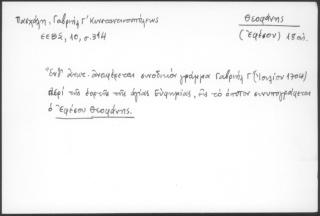 Πασχάλη, Γαβριήλ Γ´ Κωνσταντινουπόλεως
ΕΕΒΣ, 10, σ. 314
Θεοφάνης
(Ἐφέσου) 18 αἰ.
Ἔνθ' ἀνωτ. ἀναφέρεται συνοδικὸν γράμμα Γαβριὴλ Γ´ (Ἰουλίου 1704)
περὶ τῆς ἑορτῆς τῆς ἁγίας Εὐφημίας, εἰς τὸ ὁποῖον συνυπογράφεται
ὁ Ἐφέσου Θεοφάνης.